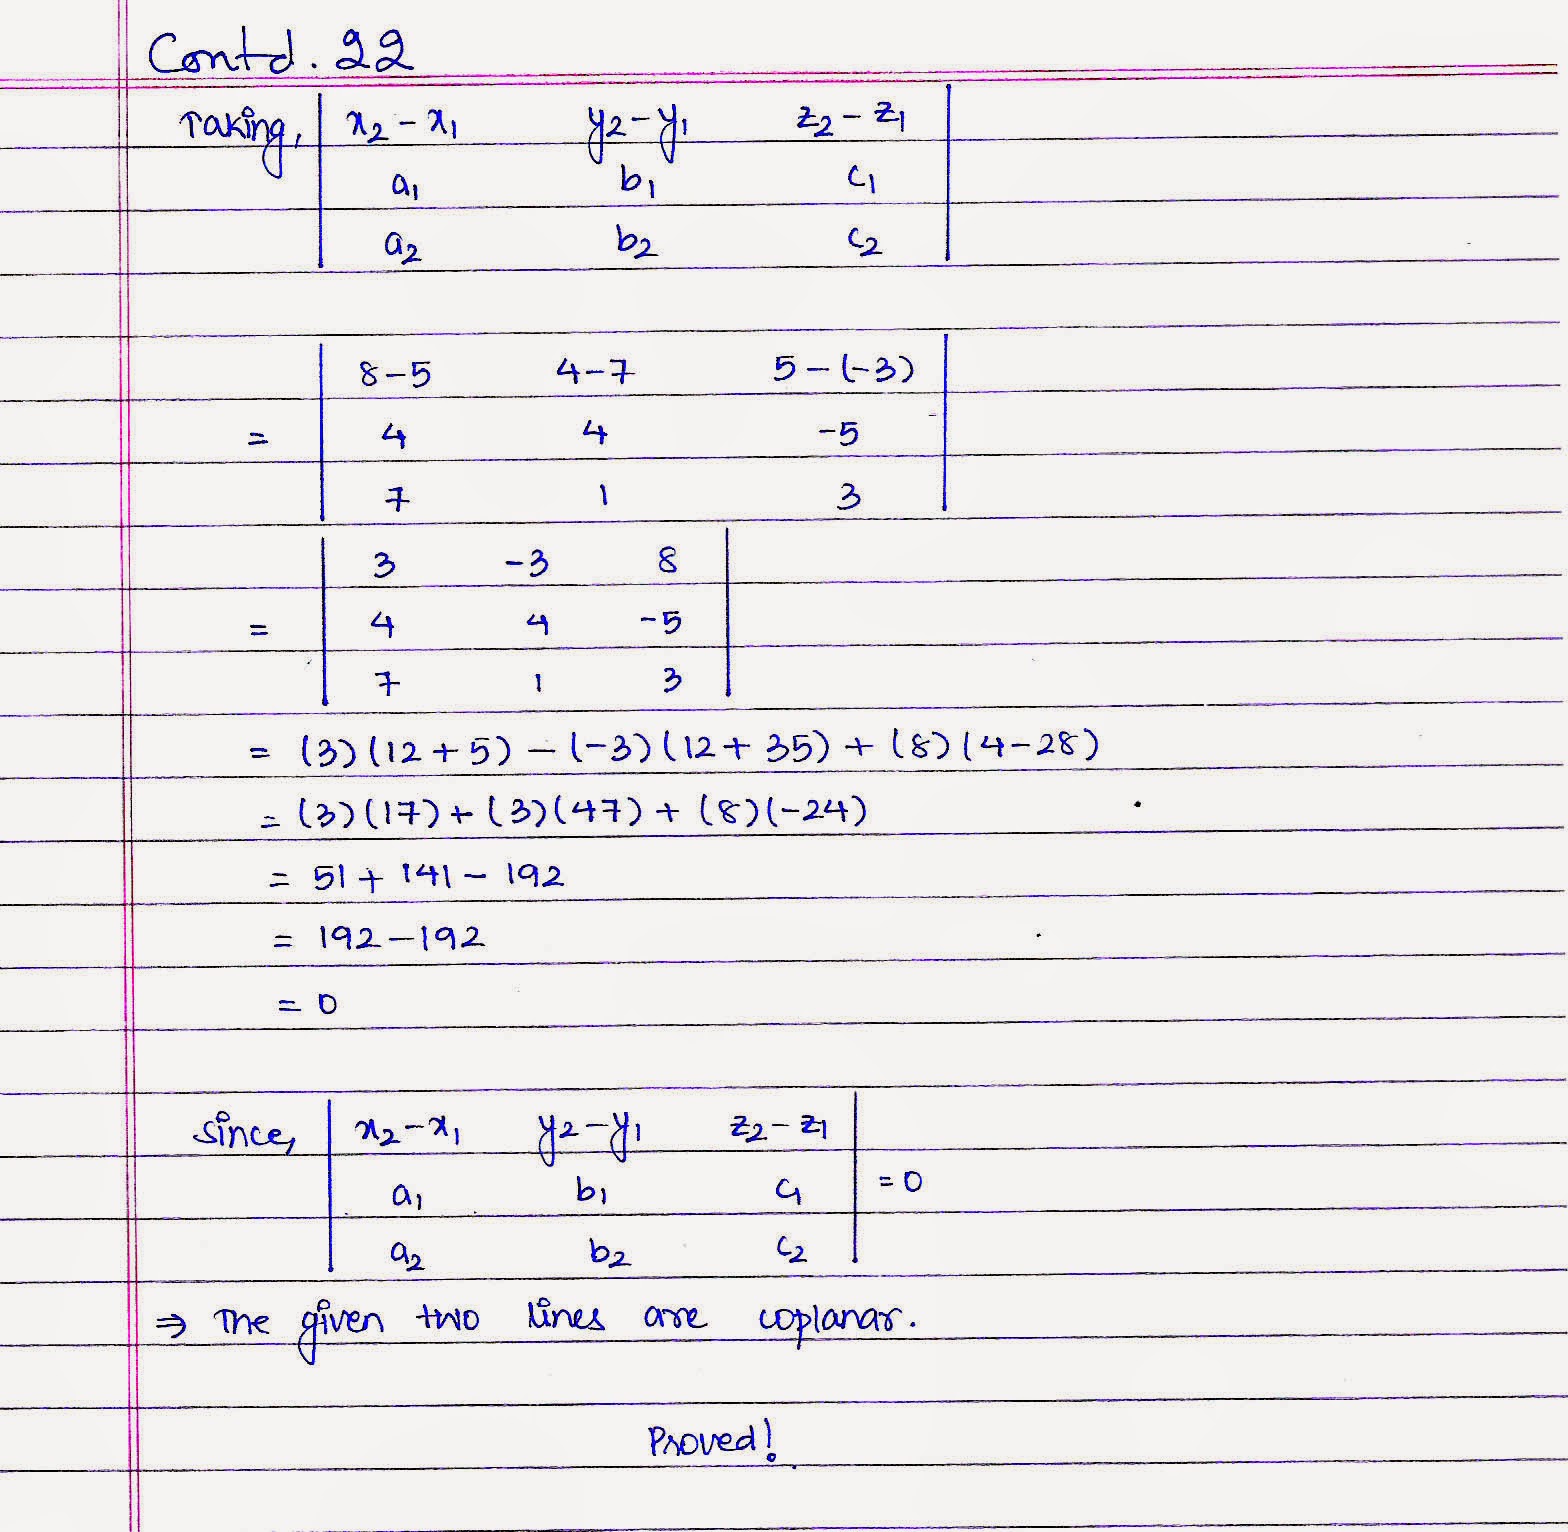 Contd. 22
Taking, | x2 - x1 y2 - y1 z2 - z1 |
| a1 b1 c1 |
| a2 b2 c2 |
| 8-5 4-7 5-(-3) |
= | 4 4 -5 |
| 7 1 3 |
| 3 -3 8 |
= | 4 4 -5 |
| 7 1 3 |
= (3)(12+5) - (-3)(12+35) + (8)(4-28)
= (3)(17) + (3)(47) + (8)(-24)
= 51 + 141 - 192
= 192 - 192
= 0
Since, | x2 - x1 y2 - y1 z2 - z1 |
| a1 b1 c1 | = 0
| a2 b2 c2 |
⇒ The given two lines are coplanar.
Proved!